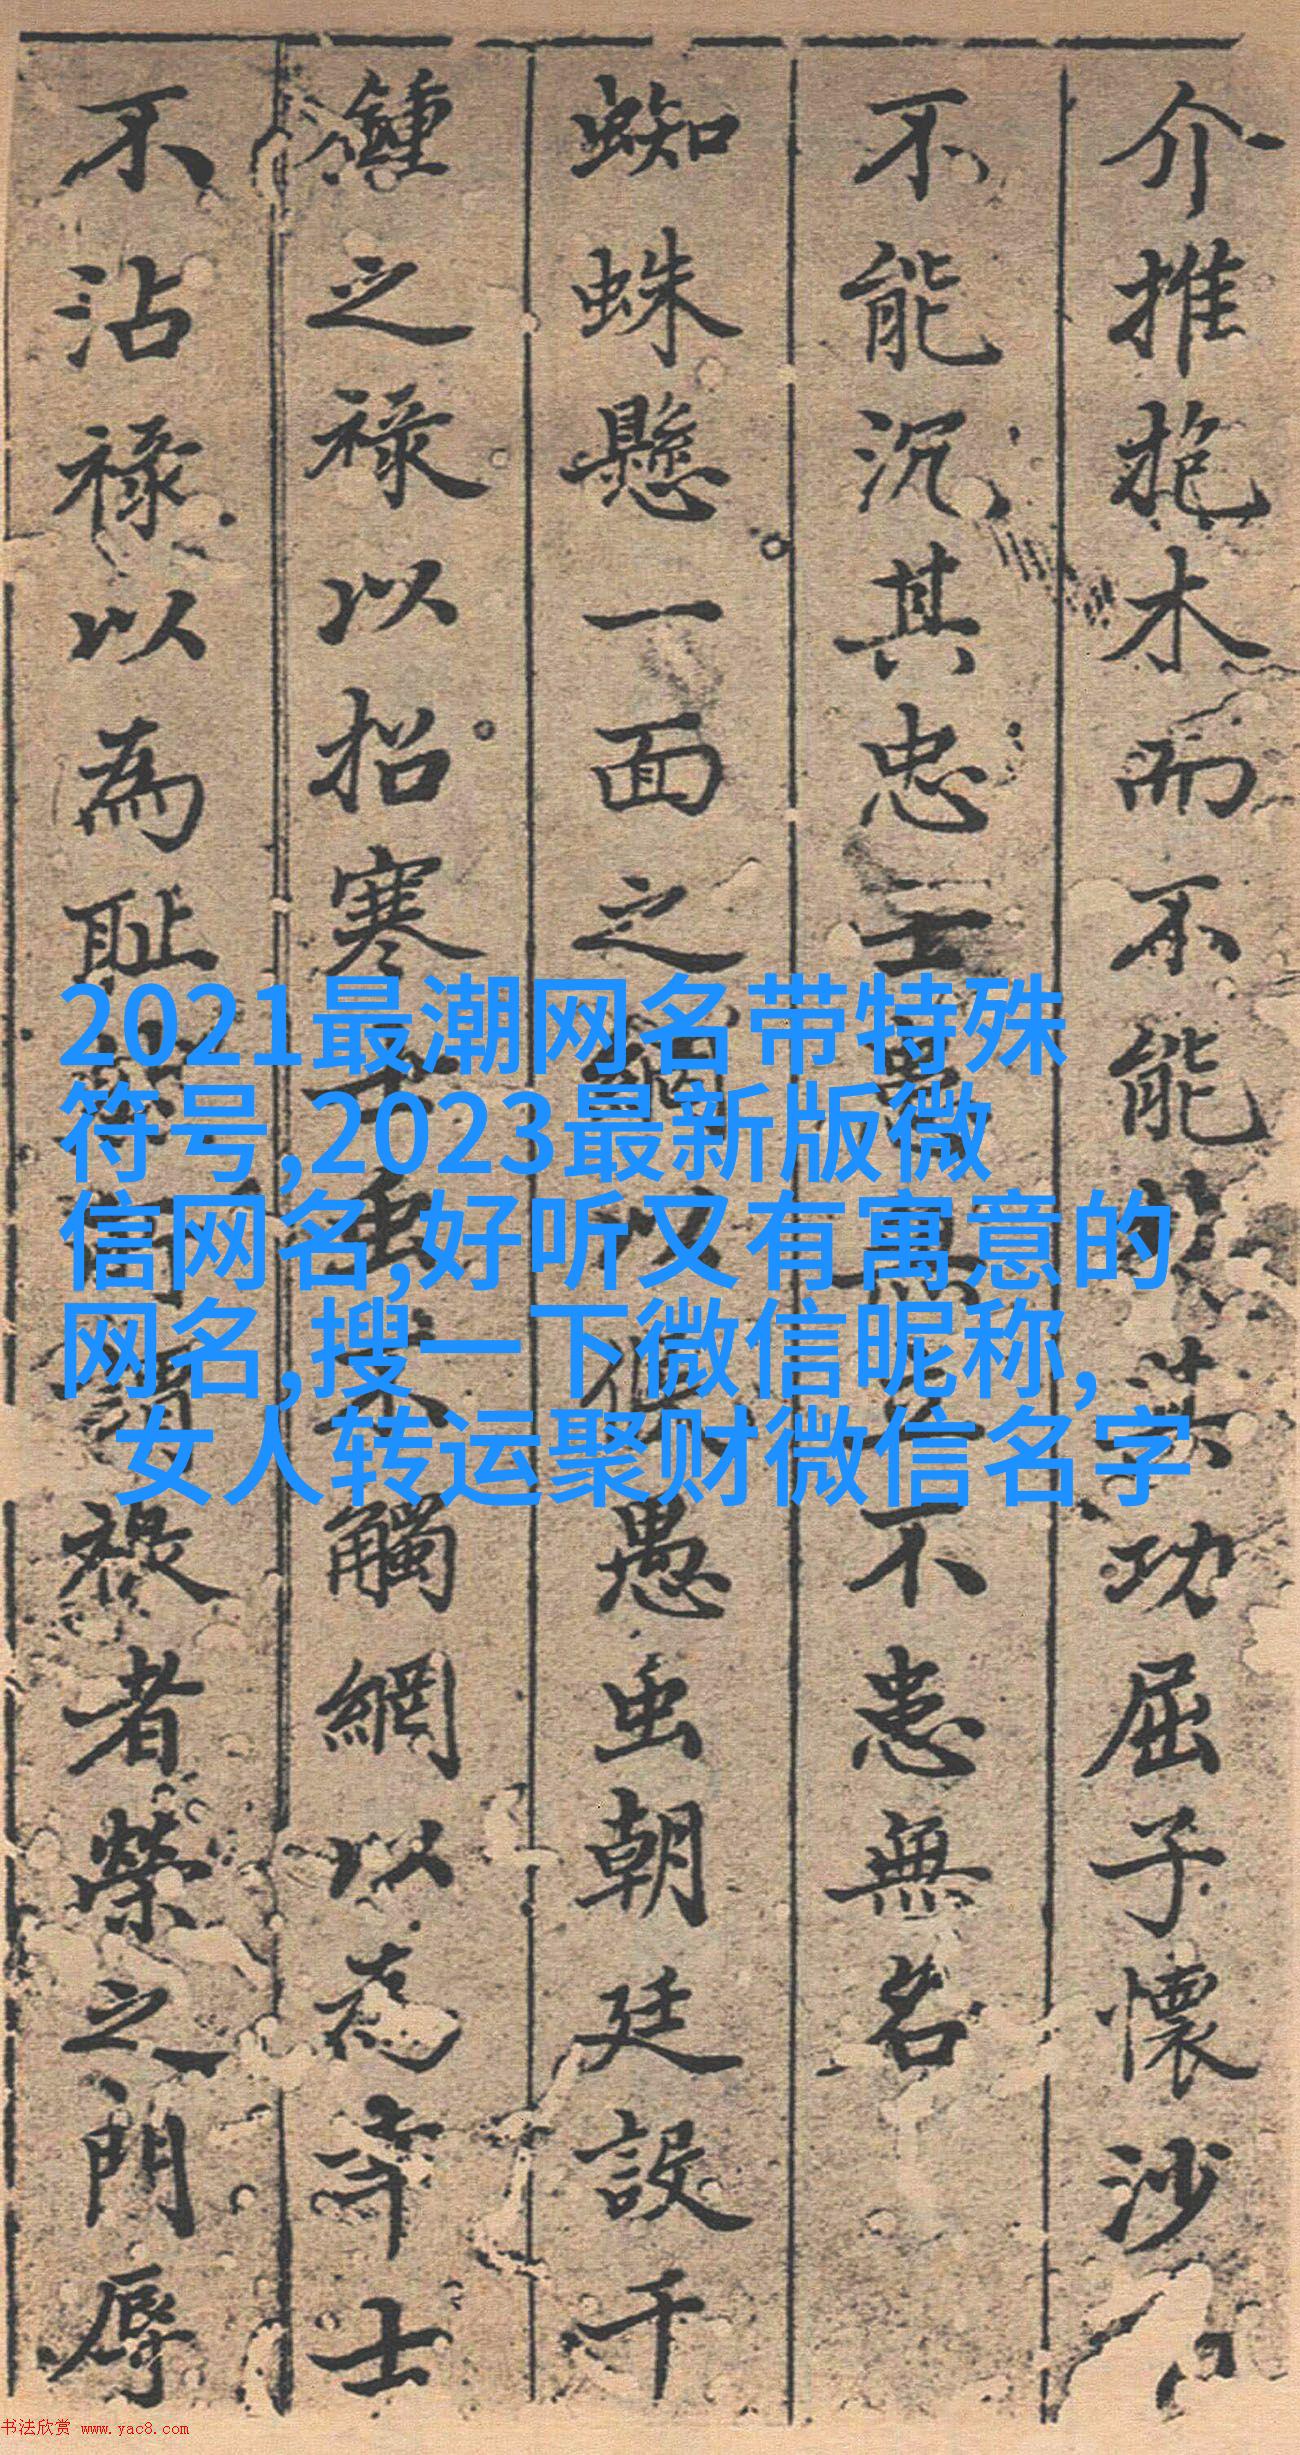 介推抱木而不能其功屈子懷沙
不能沉其忠士患無立不患無名
蜘蛛懸一面之網以愚虫朝廷設千
鍾之祿以招寒士虫不觸網以為幸士
不沾祿以為恥謂祿者榮之門辱
2021最潮网名带特殊
符号,2023最新版微
信网名,好听又有寓意的
网名,搜一下微信昵称,
女人转运聚财微信名字
书法欣赏 www.yac8.com